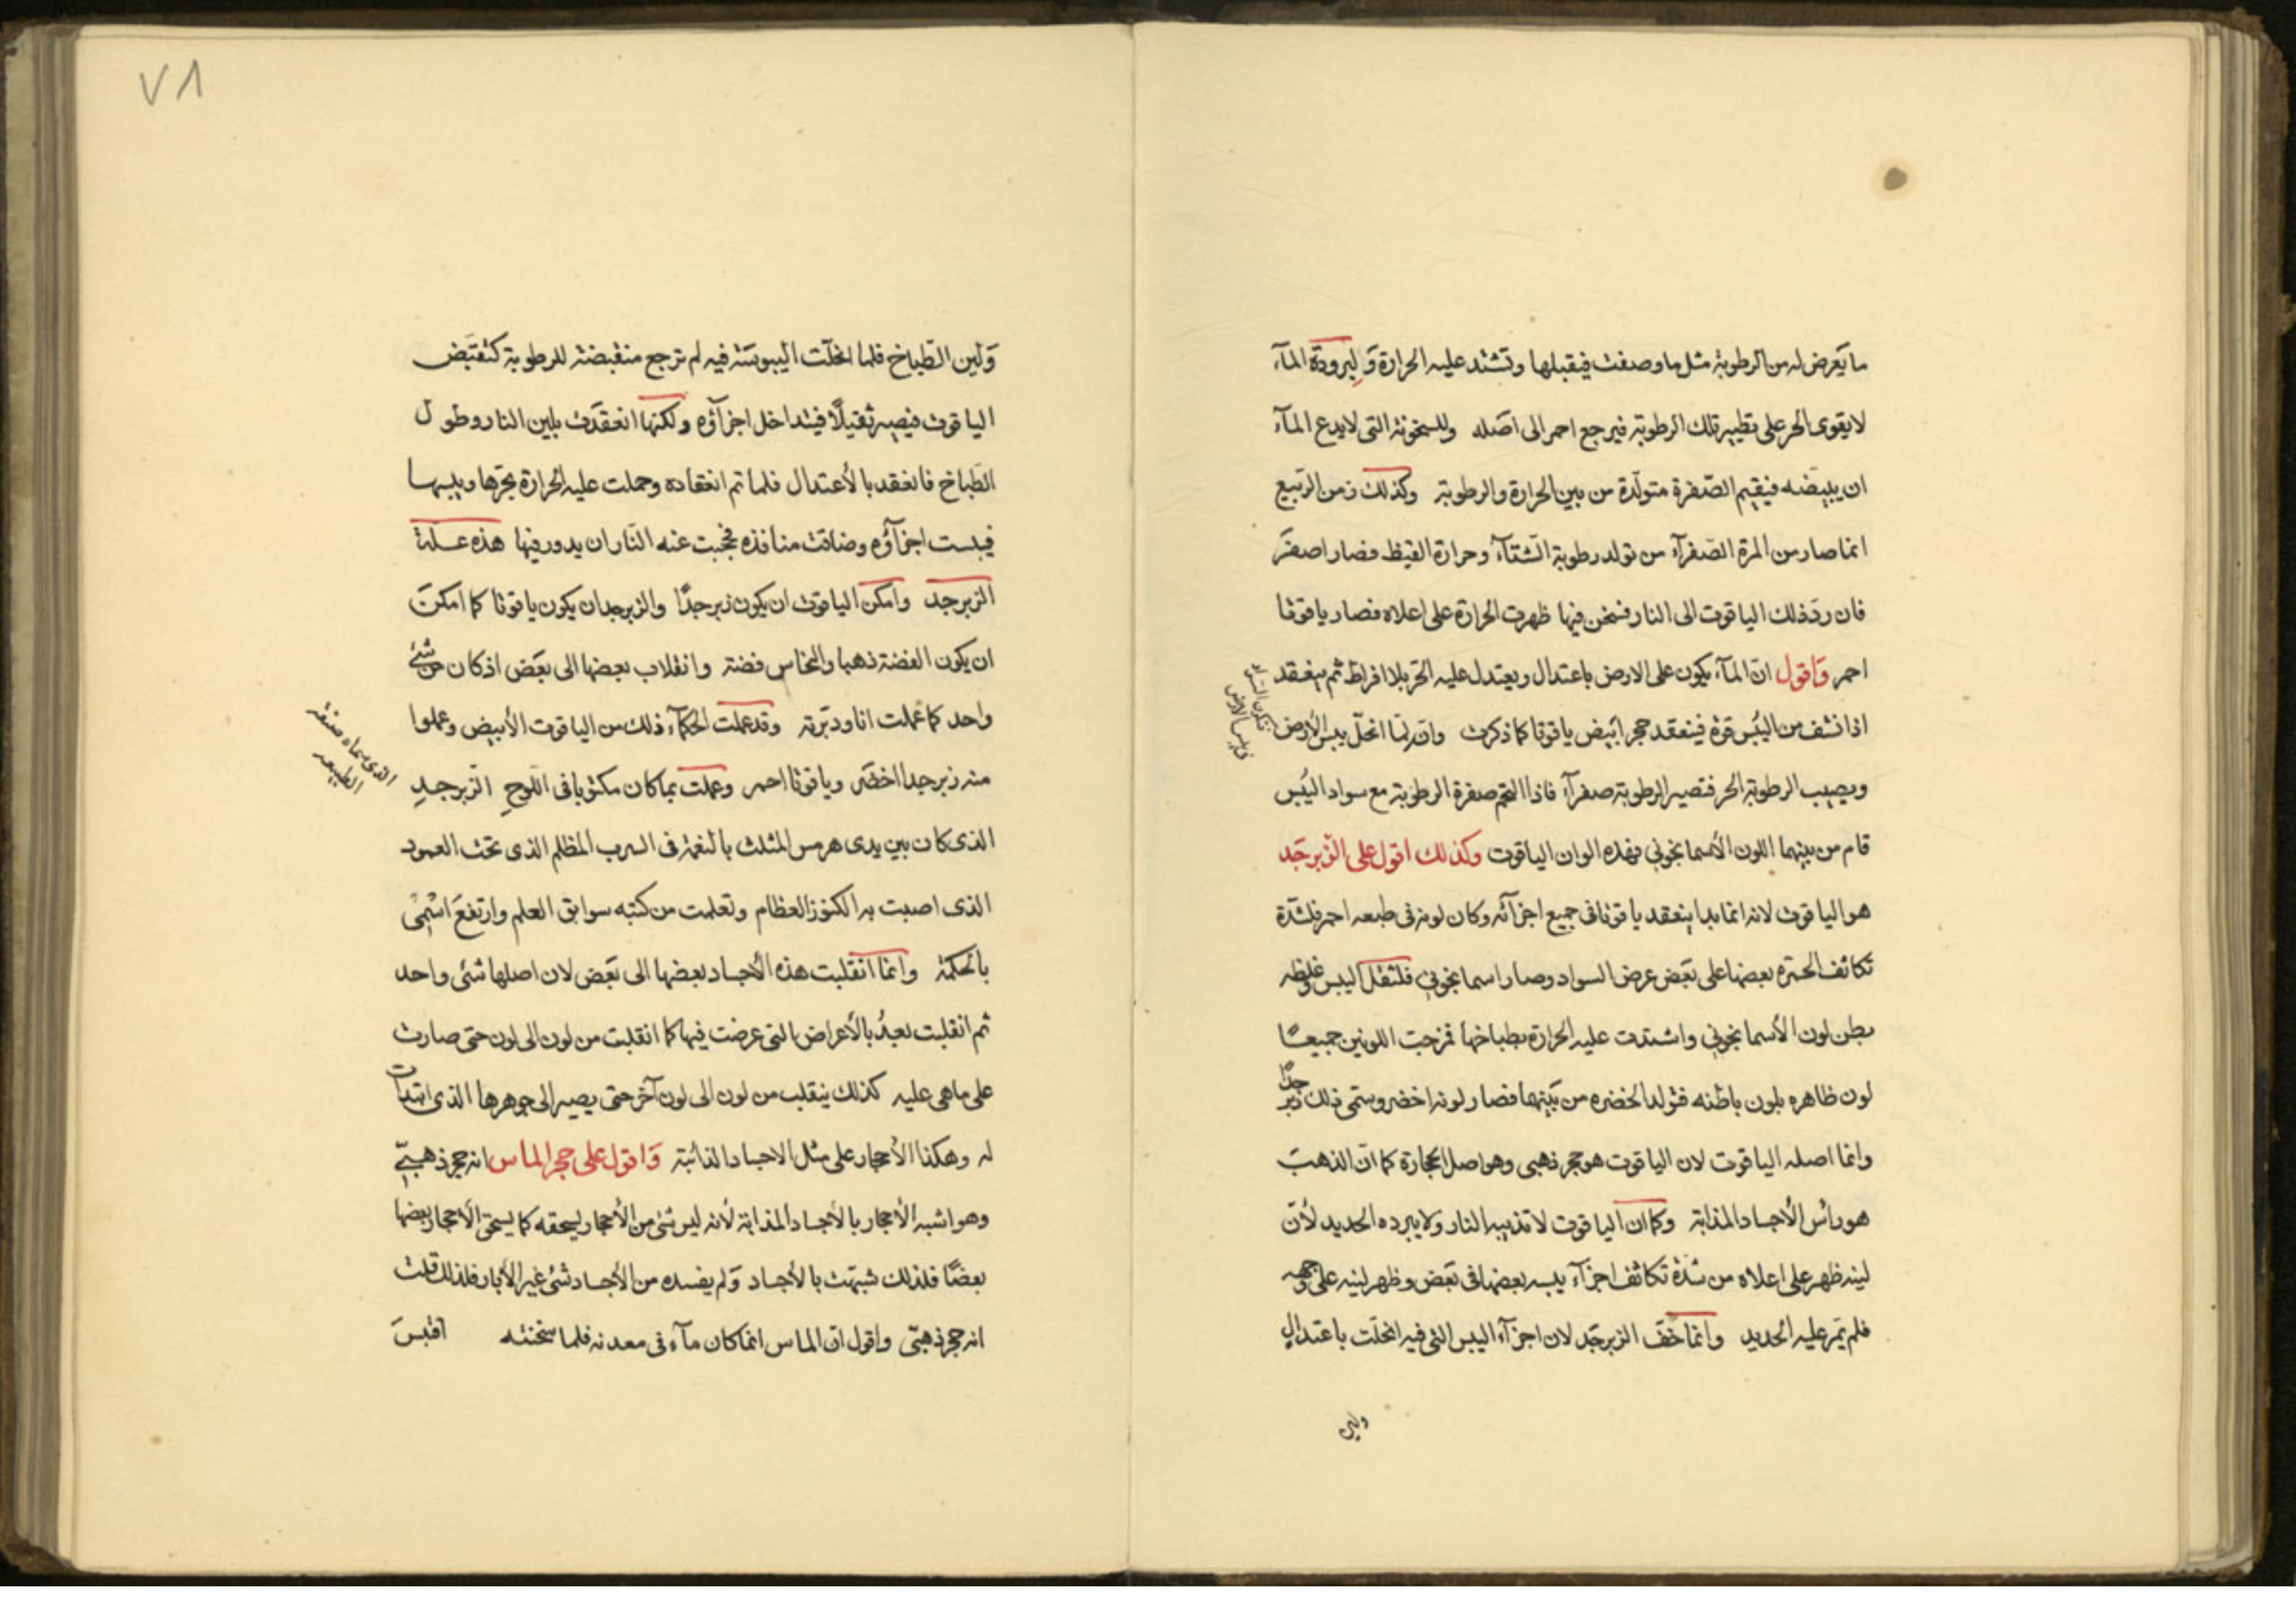 ما يَعرض له من الرطوبة مثل ما وصفت فيقبلها وتشتد عليه الحرارة وَلبرودة المآء
لا يقوى الحر على تطيير تلك الرطوبة فيرجع احمر الى اصَله وللسخونة التى لا يدع المآء
ان يبيضه فيقيم الصّفرة متولّدة من بين الحرارة والرطوبة وكذلك زمن الربيع
انما صار من المرة الصّفرآء من تولد رطوبة الشتآء وحرارة القيظ فصار اصفر
فان ردّ ذلك الياقوت الى النار فسخن فيها ظهرت الحرارة على اعلاه فصار ياقوتا
احمر وَاقول انّ المآء يكون على الارض باعتدال ويعتدل عليه الحّر بلا افراط ثم ينعقد
اذا نشف من اليُبس قوة فينعقد حجر ابَيض ياقوتا كما ذكرت وانّه لمّا انحلّ يبس الأرض
ويصيب الرطوبة الحر فتصير الرطوبة صفرآء فاذا التحم صفرة الرطوبة مع سواد اليُبس
قام من بينهما اللون الأسمانجوني فهذه الوان الياقوت وكذلك اقول على الزبرجَد
هو الياقوت لانه انما بدا لينعقد ياقوتا في جميع اجزآئه وكان لونه في طبعه احمر فلشدّة
تكاثف الحمرة بعضها على بعَض عرض السواد وصار اسمانجوني فلثقل اليبس وغلظه
بطن لون الأسمانجوني واشتدت عليه الحرارة بطباخها فمزجت اللونين جميعًا
لون ظاهره بلون باطنه فتولد الخضره من بَينهما فصار لونه اخضر وسمّى ذلك زبر
جدًا
وانما اصله الياقوت لان الياقوت هو حجر ذهبى وهو اصل الحجارة كما انّ الذهبَ
هو رأس الأجساد المذابة وكما ان الياقوت لا تذيبه النار ولا يبرده الحديد لأنّ
لينه ظهر على اعلاه من شدّة تكاثف اجزآء يبسه بعضها في بَعض وظهر لينه على وجهه
فلم يَمر عليه الحديد وانما خفّ الزبرجد لان اجزآء اليبس التى فيه انحلّت باعتدال
ولين
وَلين الطّباخ فلما انحلّت اليبوسَة فيه لم ترجع منقبضة للرطوبة كتقبَض
الياقوت فيصير ثقيلًا فيتداخل اجزآؤه ولكنها انعقدَت بلين النار وطول
الطَباخ فانعقد بالأعتدال فلما تم انعقاده وحملت عليه الحرارة بحرّها ويبسها
فيبست اجزآؤه وضاقت منافذه فحجبت عنه النّار ان يدور فيها هذه علّة
الزبرجد وامكن الياقوت ان يكون زبرجدًا والزبرجد ان يكون ياقوتا كما امكنَ
ان يكون الفضة ذهبا والنحاس فضة وانقلاب بعضها الى بعَض اذ كان من شئ
واحد كما عملت انا ودبّرته وقد عملت الحكمآء ذلك من الياقوت الأبيض وعملوا
منه زبرجدا اخضَر وياقوتا احمر وعملت بما كان مكتوبا في اللّوح الزبرجد
الذى سماه صنعة
الطبيعه
الذى كان بين يدى هرمس المثلث بالنعمة فى السرب المظلم الذى تحت العمود
الذى اصبت به الكنوز العظام وتعلمت من كتبه سوابق العلم وارتفعَ اسْمى
بالحكمة وانما انقلبت هذه الأجساد بعضها الى بَعض لان اصلها شئ واحد
ثم انقلبت بعدُ بالأعراض التى عرضت فيها كما انقلبت من لون الى لون حتى صارت
على ماهى عليه كذلك ينقلب من لون الى لون آخر حتى يصير الى جوهرها الذى ابتدأت
له وهكذا الأحجار على مثل الاجساد الذائبة وَاقول على حجر الماس انه حجر ذهبىّ
وهو اشبه الأحجار بالأجساد المذابة لأنه ليس شئ من الأحجار يسحقه كما يسحق الأحجار بعضها
بعضًا فلذلك شبّهت بالأجساد وَلم يفسده من الأجساد شئ غير الأبار فلذلك قلت
انه حجر ذهبىّ واقول انّ الماس انما كان مآء فى معدنه فلما سخنته اقبسَ
٧١